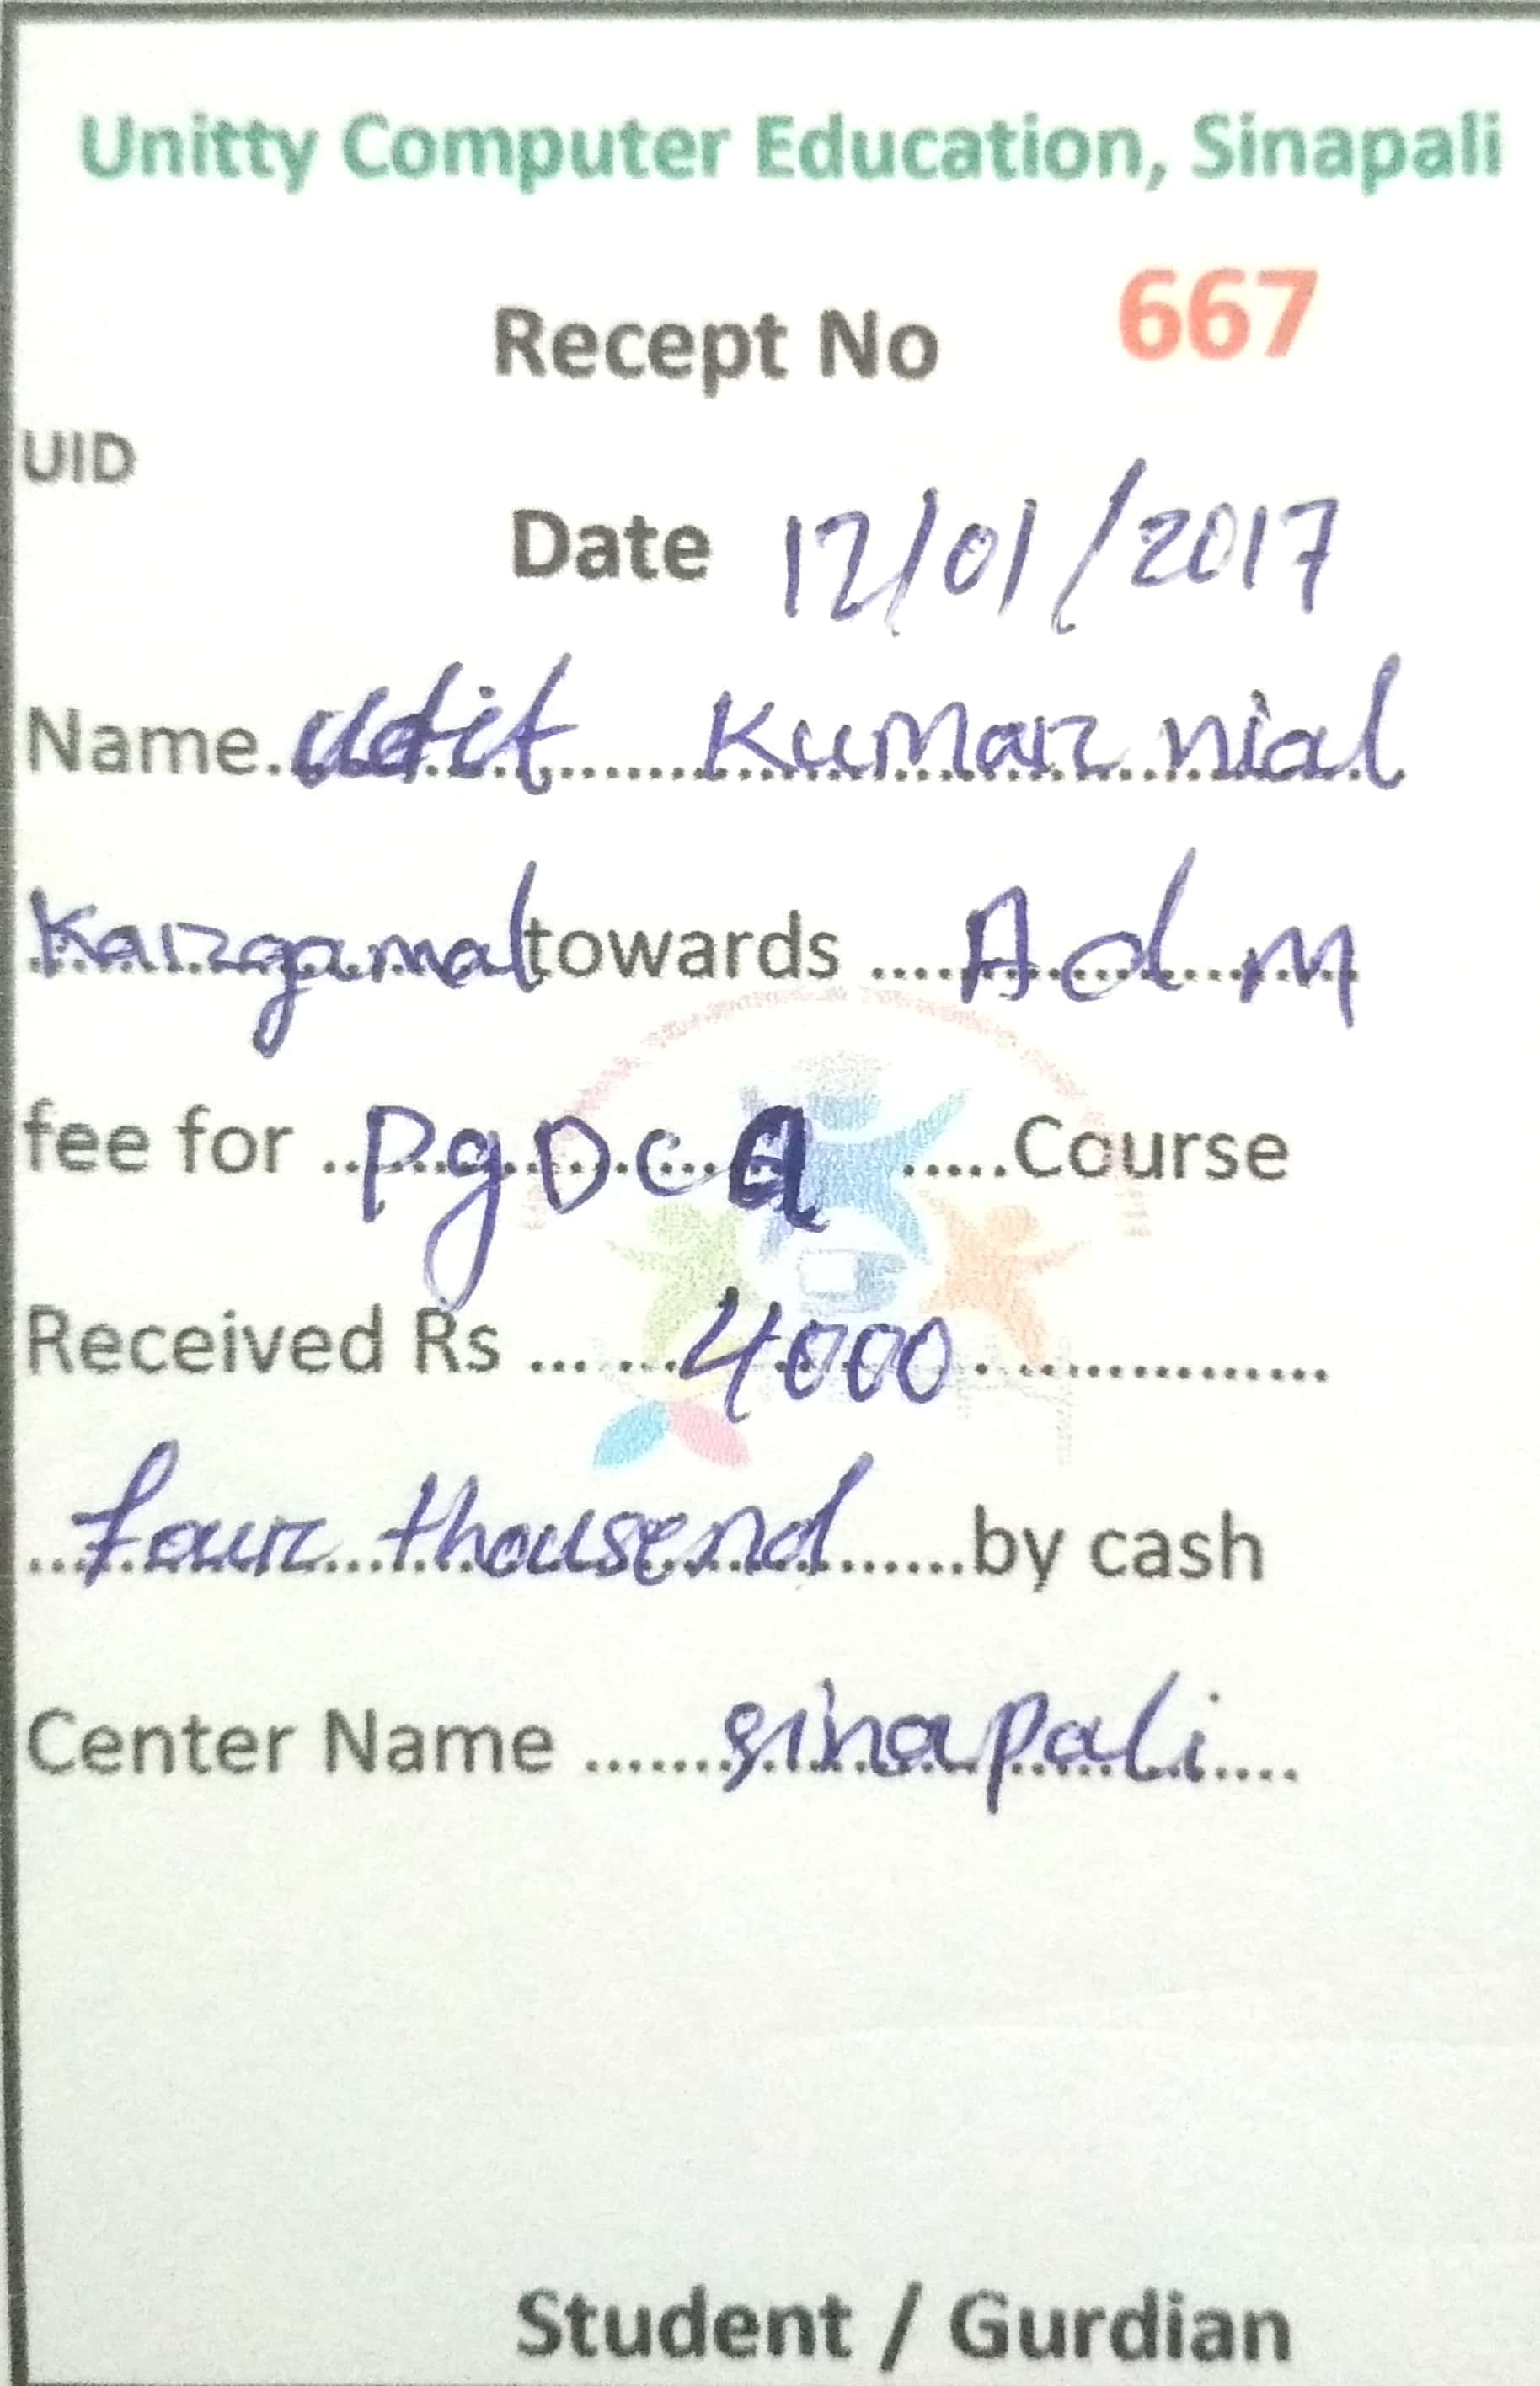 Unitty Computer Education, Sinapali
Recept No 667
UID
Date 12/01/2017
Name. Udit Kumar nial
Kargamal towards .... Adm
fee for .. PgDca .....Course
Received Rs ... ... 4000 . ..............
... four thousend .......by cash
Center Name ....... sinapali ....
Student / Gurdian